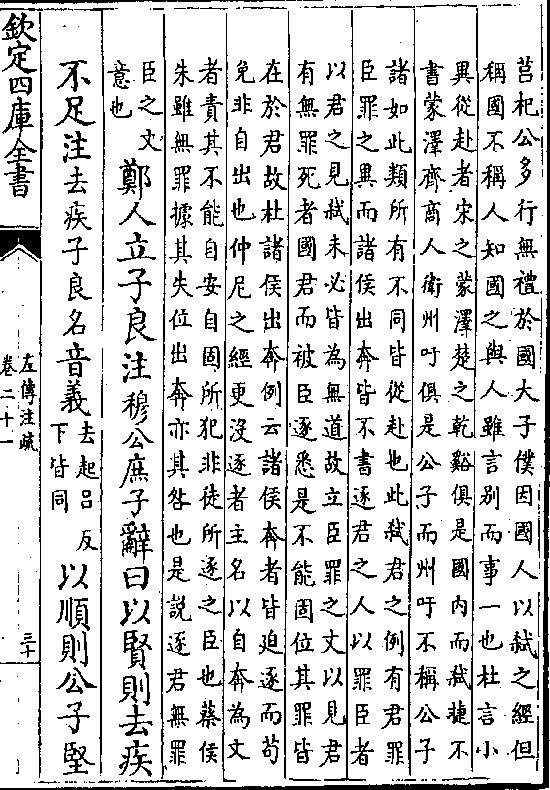 莒杞公多行無禮於國大子僕因國人以弑之經但
稱國不稱人知國之與人雖言別而事一也杜言小
異從赴者宋之蒙澤楚之乾谿俱是國内而弑捷不
書蒙澤齊商人衛州吁俱是公子而州吁不稱公子
諸如此類所有不同皆從赴也此弑君之例有君罪
臣罪之異而諸侯出奔皆不書逐君之人以罪臣者
以君之見弑未必皆為無道故立臣罪之文以見君
有無罪死者國君而被臣逐悉是不能固位其罪皆
在於君故杜諸侯出奔例云諸侯奔者皆迫逐而苟
免非自出也仲尼之經更沒逐者主名以自奔為文
者責其不能自安自固所犯非徒所逐之臣也蔡侯
朱雖無罪據其失位出奔亦其咎也是説逐君無罪
臣之文
意也
鄭人立子良注穆公庶子辭曰以賢則去疾
不足注去疾子良名音義去起呂反
下皆同
以順則公子堅
欽定四庫全書
左傳注疏
卷二十一
三十